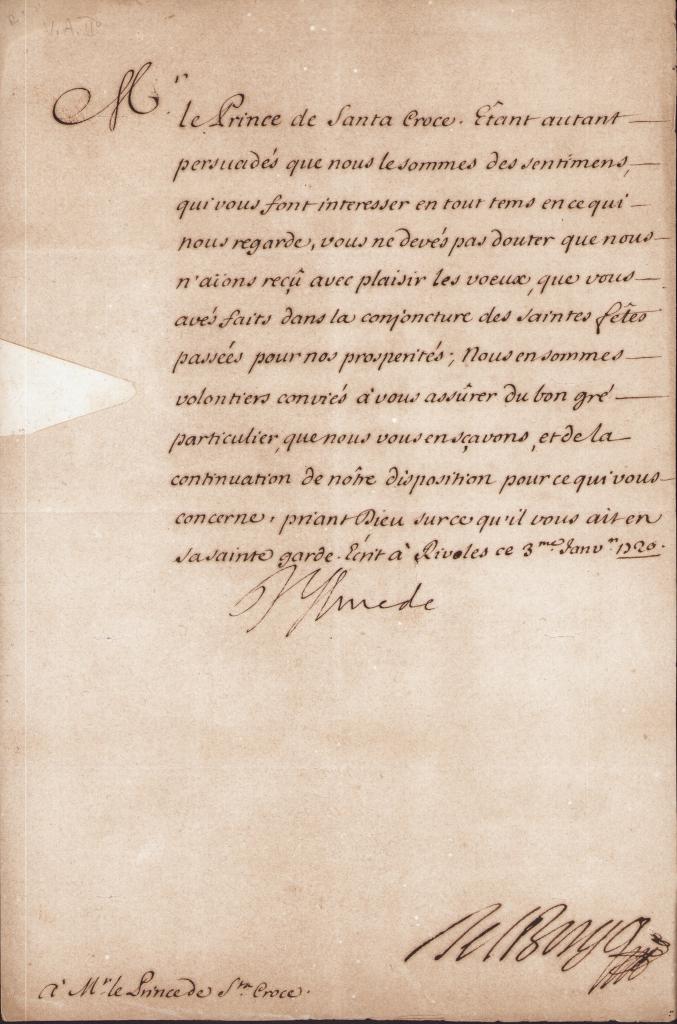 V.A. II°
M.r le Prince de Santa Croce. Etant autant
persuadés que nous le sommes des sentimens,
qui vous font interesser en tout tems en ce qui
nous regarde, vous ne devés pas douter que nous
n'aïons reçû avec plaisir les voeux, que vous
avés faits dans la conjoncture des saintes fêtes
passées pour nos prosperités; Nous en sommes
volontiers conviés à vous assûrer du bon gré
particulier, que nous vous en sçavons, et de la
continuation de nôtre disposition pour ce qui vous
concerne, priant Dieu sur ce qu'il vous ait en
sa sainte garde. Ecrit à Rivoles ce 3.me Janv.r 1720.
V Amede
Del Borgo
à M.r le Prince de S.ta Croce.